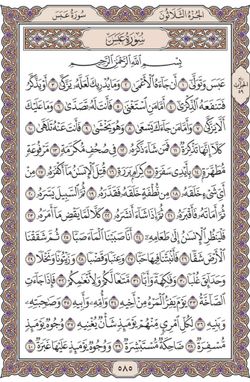 الجُزْءُ الثَّلَاثُونَ
سُورَةُ عَبَسَ
سُورَةُ عَبَسَ
بِسْمِ اللَّهِ الرَّحْمَٰنِ الرَّحِيمِ
عَبَسَ وَتَوَلَّىٰٓ ١ أَن جَآءَهُ ٱلْأَعْمَىٰ ٢ وَمَا يُدْرِيكَ لَعَلَّهُۥ يَزَّكَّىٰٓ ٣ أَوْ يَذَّكَّرُ
فَتَنفَعَهُ ٱلذِّكْرَىٰٓ ٤ أَمَّا مَنِ ٱسْتَغْنَىٰ ٥ فَأَنتَ لَهُۥ تَصَدَّىٰ ٦ وَمَا عَلَيْكَ
أَلَّا يَزَّكَّىٰ ٧ وَأَمَّا مَن جَآءَكَ يَسْعَىٰ ٨ وَهُوَ يَخْشَىٰ ٩ فَأَنتَ عَنْهُ تَلَهَّىٰ ١٠
كَلَّآ إِنَّهَا تَذْكِرَةٌ ١١ فَمَن شَآءَ ذَكَرَهُۥ ١٢ فِى صُحُفٍ مُّكَرَّمَةٍ ١٣ مَّرْفُوعَةٍ
مُّطَهَّرَةٍۭ ١٤ بِأَيْدِى سَفَرَةٍ ١٥ كِرَامٍۭ بَرَرَةٍ ١٦ قُتِلَ ٱلْإِنسَٰنُ مَآ أَكْفَرَهُۥ ١٧ مِنْ
أَىِّ شَىْءٍ خَلَقَهُۥ ١٨ مِن نُّطْفَةٍ خَلَقَهُۥ فَقَدَّرَهُۥ ١٩ ثُمَّ ٱلسَّبِيلَ يَسَّرَهُۥ ٢٠
ثُمَّ أَمَاتَهُۥ فَأَقْبَرَهُۥ ٢١ ثُمَّ إِذَا شَآءَ أَنشَرَهُۥ ٢٢ كَلَّا لَمَّا يَقْضِ مَآ أَمَرَهُۥ ٢٣
فَلْيَنظُرِ ٱلْإِنسَٰنُ إِلَىٰ طَعَامِهِۦٓ ٢٤ أَنَّا صَبَبْنَا ٱلْمَآءَ صَبًّا ٢٥ ثُمَّ شَقَقْنَا
ٱلْأَرْضَ شَقًّا ٢٦ فَأَنۢبَتْنَا فِيهَا حَبًّا ٢٧ وَعِنَبًا وَقَضْبًا ٢٨ وَزَيْتُونًا وَنَخْلًا ٢٩
وَحَدَآئِقَ غُلْبًا ٣٠ وَفَٰكِهَةً وَأَبًّا ٣١ مَّتَٰعًا لَّكُمْ وَلِأَنْعَٰمِكُمْ ٣٢ فَإِذَا جَآءَتِ
ٱلصَّآخَّةُ ٣٣ يَوْمَ يَفِرُّ ٱلْمَرْءُ مِنْ أَخِيهِ ٣٤ وَأُمِّهِۦ وَأَبِيهِ ٣٥ وَصَٰحِبَتِهِۦ
وَبَنِيهِ ٣٦ لِكُلِّ ٱمْرِئٍ مِّنْهُمْ يَوْمَئِذٍ شَأْنٌ يُغْنِيهِ ٣٧ وُجُوهٌ يَوْمَئِذٍ
مُّسْفِرَةٌ ٣٨ ضَاحِكَةٌ مُّسْتَبْشِرَةٌ ٣٩ وَوُجُوهٌ يَوْمَئِذٍ عَلَيْهَا غَبَرَةٌ ٤٠
٥٨٥